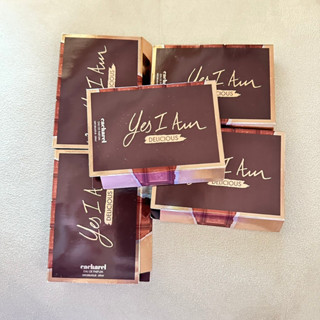 Yes I Am
DELICIOUS
cacharel
Yes I Am
DELICIOUS
Yes I Am
DELICIOUS
cacharel
Yes I Am
DELICIOUS
Yes I Am
DELICIOUS
cacharel
EAU DE PARFUM